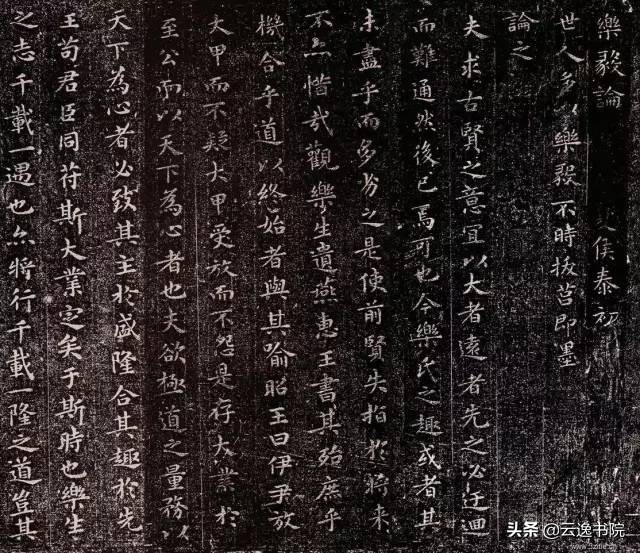 樂毅論
侯泰初
世人多以樂毅不時拔莒即墨
論之
夫求古賢之意宜以大者遠者先之必迂迴
而難通然後已焉可也今樂氏之趣或者其
未盡乎而多劣之是使前賢失指於將来
不亦惜哉觀樂生遺燕惠王書其殆庶乎
機合乎道以終始者與其喻昭王曰伊尹放
大甲而不疑大甲受放而不怨是存大業於
至公而以天下為心者也夫欲極道之量務以
天下為心者必致其主於盛隆合其趣於先
王苟君臣同苻斯大業定矣于斯時也樂生
之志千載一遇也亦將行千載一隆之道豈其
头条@云逸书院